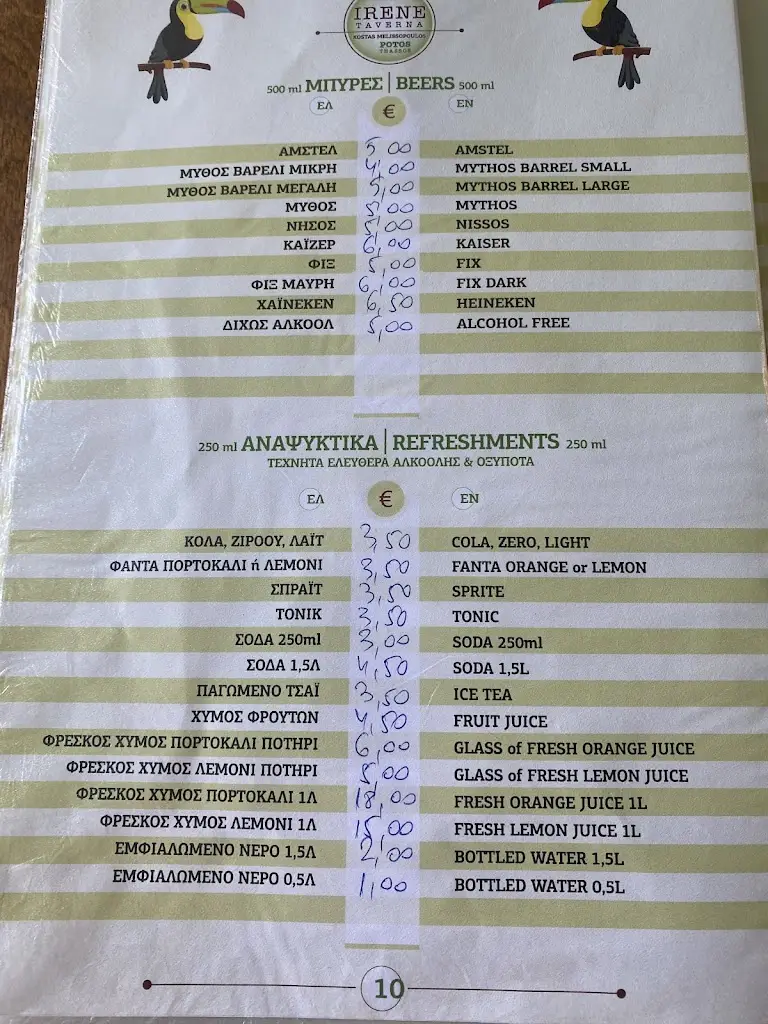 IRENE
TAVERNA
KOSTAS MELISSOPOULOS
POTOS
THASSOS
500 ml ΜΠΥΡΕΣ | BEERS 500 ml
ΕΛ € EN
ΑΜΣΤΕΛ 5,00 AMSTEL
ΜΥΘΟΣ ΒΑΡΕΛΙ ΜΙΚΡΗ 4,00 MYTHOS BARREL SMALL
ΜΥΘΟΣ ΒΑΡΕΛΙ ΜΕΓΑΛΗ 5,00 MYTHOS BARREL LARGE
ΜΥΘΟΣ 5,00 MYTHOS
ΝΗΣΟΣ 5,00 NISSOS
ΚΑΪΖΕΡ 6,00 KAISER
ΦΙΞ 5,00 FIX
ΦΙΞ ΜΑΥΡΗ 6,00 FIX DARK
ΧΑΪΝΕΚΕΝ 6,50 HEINEKEN
ΔΙΧΩΣ ΑΛΚΟΟΛ 5,00 ALCOHOL FREE
250 ml ΑΝΑΨΥΚΤΙΚΑ | REFRESHMENTS 250 ml
ΤΕΧΝΗΤΑ ΕΛΕΥΘΕΡΑ ΑΛΚΟΟΛΗΣ & ΟΞΥΠΟΤΑ
ΕΛ € EN
ΚΟΛΑ, ΖΙΡΟΟΥ, ΛΑΪΤ 3,50 COLA, ZERO, LIGHT
ΦΑΝΤΑ ΠΟΡΤΟΚΑΛΙ ή ΛΕΜΟΝΙ 3,50 FANTA ORANGE or LEMON
ΣΠΡΑΪΤ 3,50 SPRITE
ΤΟΝΙΚ 3,50 TONIC
ΣΟΔΑ 250ml 3,00 SODA 250ml
ΣΟΔΑ 1,5Λ 4,50 SODA 1,5L
ΠΑΓΩΜΕΝΟ ΤΣΑΪ 3,50 ICE TEA
ΧΥΜΟΣ ΦΡΟΥΤΩΝ 4,50 FRUIT JUICE
ΦΡΕΣΚΟΣ ΧΥΜΟΣ ΠΟΡΤΟΚΑΛΙ ΠΟΤΗΡΙ 6,00 GLASS of FRESH ORANGE JUICE
ΦΡΕΣΚΟΣ ΧΥΜΟΣ ΛΕΜΟΝΙ ΠΟΤΗΡΙ 5,00 GLASS of FRESH LEMON JUICE
ΦΡΕΣΚΟΣ ΧΥΜΟΣ ΠΟΡΤΟΚΑΛΙ 1Λ 18,00 FRESH ORANGE JUICE 1L
ΦΡΕΣΚΟΣ ΧΥΜΟΣ ΛΕΜΟΝΙ 1Λ 15,00 FRESH LEMON JUICE 1L
ΕΜΦΙΑΛΩΜΕΝΟ ΝΕΡΟ 1,5Λ 2,00 BOTTLED WATER 1,5L
ΕΜΦΙΑΛΩΜΕΝΟ ΝΕΡΟ 0,5Λ 1,00 BOTTLED WATER 0,5L
10